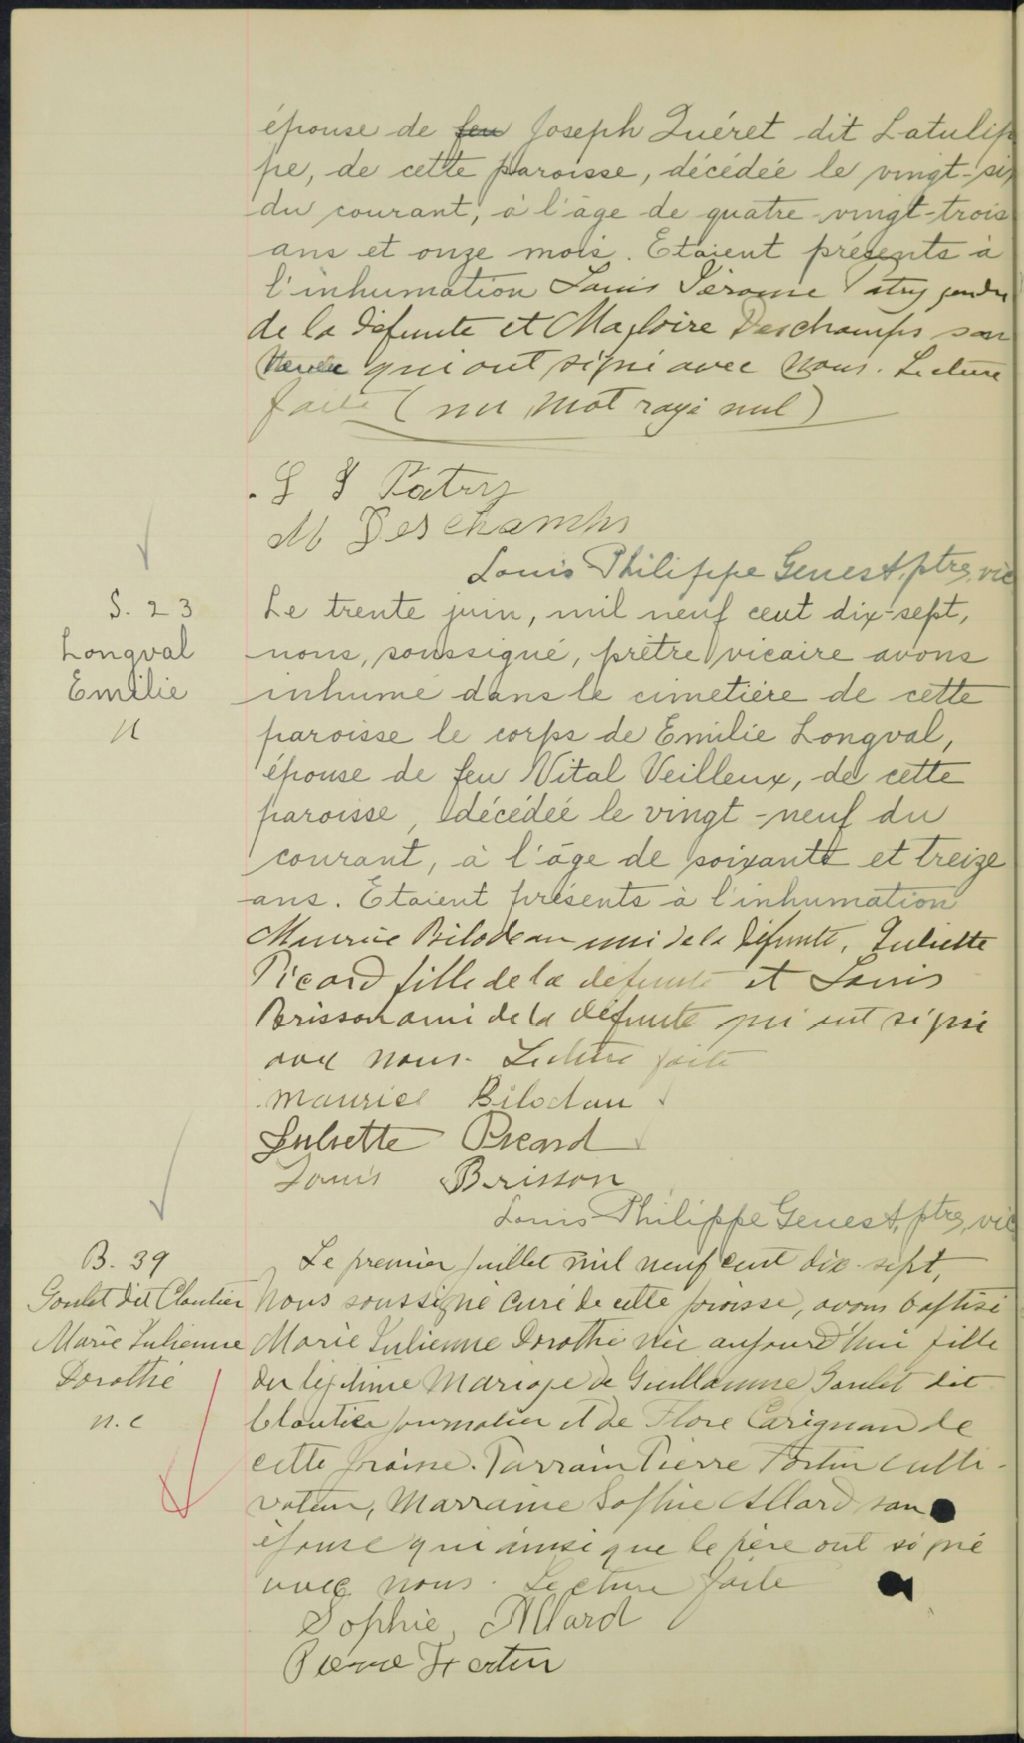 épouse de feu Joseph Quéret dit Latulip
pe, de cette paroisse, décédée le vingt-six
du courant, à l'âge de quatre-vingt-trois
ans et onze mois. Etaient présents à
l'inhumation Louis Jérome Patry gendre
de la défunte et Magloire Deschamps son
neveu qui ont signé avec nous. Lecture
faite (un mot rayé nul)
L J Patry
M Deschamps
Louis-Philippe Genest, ptre, vic
S. 23
Longval
Emilie
Le trente juin, mil neuf cent dix-sept,
nous, soussigné, prêtre vicaire avons
inhumé dans le cimetière de cette
paroisse le corps de Emilie Longval,
épouse de feu Vital Veilleux, de cette
paroisse, décédée le vingt-neuf du
courant, à l'âge de soixante et treize
ans. Etaient présents à l'inhumation
Maurice Bilodeau ami de la défunte, Juliette
Picard fille de la défunte et Louis
Brisson ami de la défunte qui ont signé
avec nous. Lecture faite
Maurice Bilodau
Juliette Picard
Louis Brisson
Louis-Philippe Genest, ptre, vic
B. 39
Goulet dit Cloutier
Marie Julienne
Dorothé
n.c
Le premier Juillet mil neuf cent dix-sept,
Nous soussigné curé de cette paroisse, avons baptisé
Marie Julienne Dorothé née aujourd'hui fille
du légitime mariage de Guillaume Goulet dit
Cloutier journalier et de Flore Carignan de
cette paroisse. Parrain Pierre Fortin culti-
vateur, Marraine Sophie Allard son
épouse qui ainsi que le père ont signé
avec nous. Lecture faite
Sophie Allard
Pierre Fortin